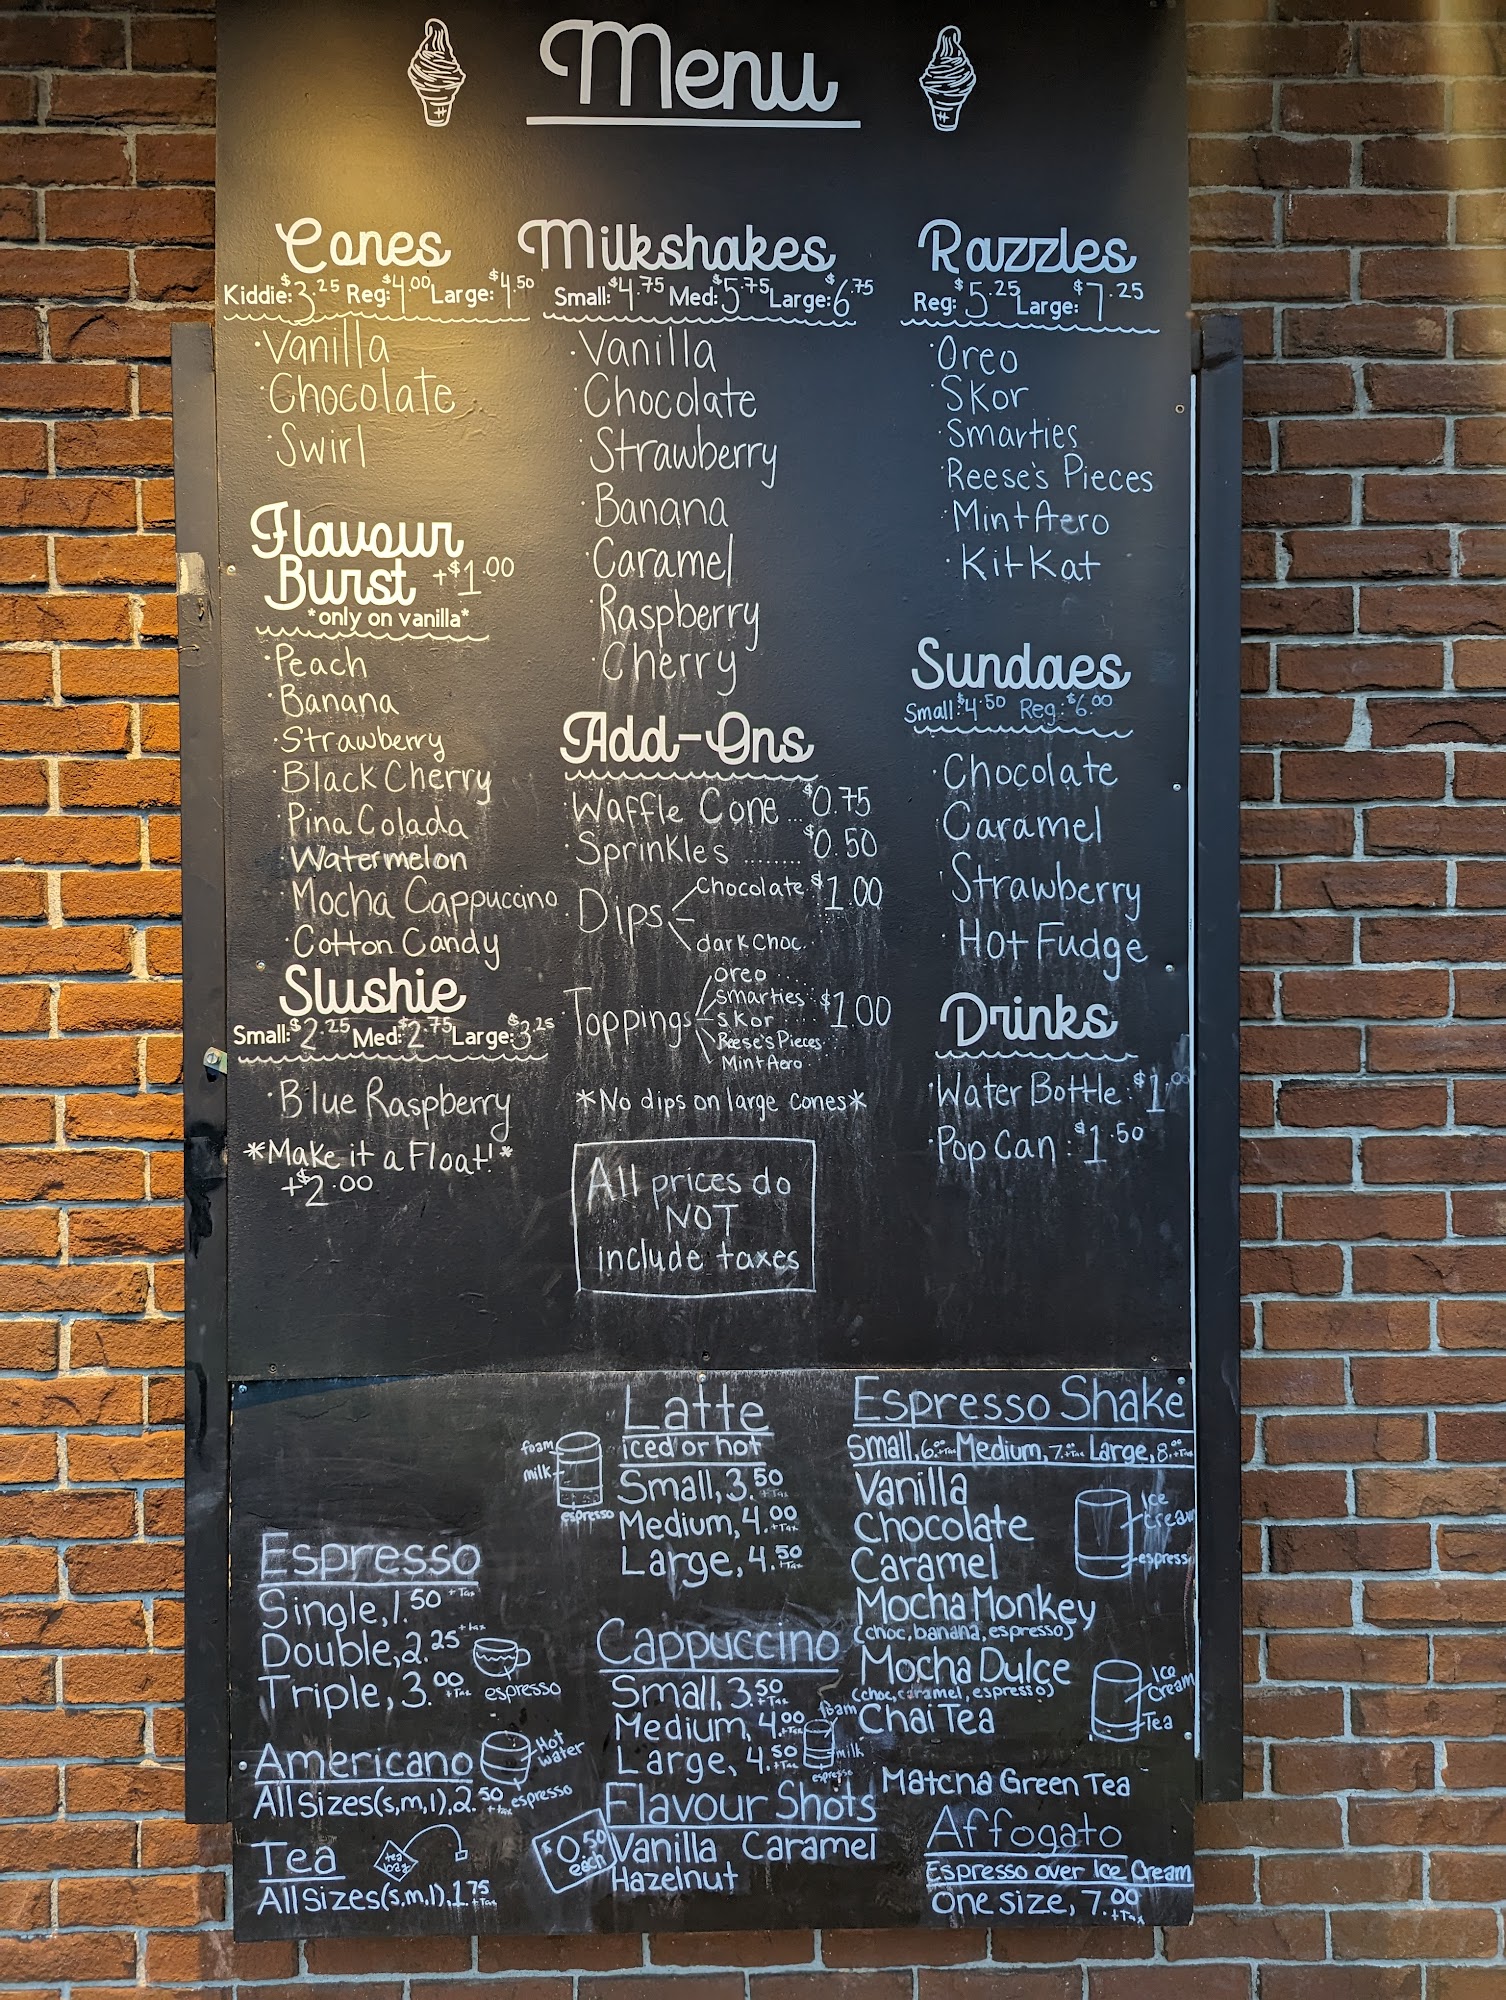 Menu
Cones
Kiddie: $3.25 Reg: $4.00 Large: $4.50
· Vanilla
· Chocolate
· Swirl
Flavour
Burst +$1.00
*only on vanilla*
· Peach
· Banana
· Strawberry
· Black Cherry
· Pina Colada
· Watermelon
· Mocha Cappuccino
· Cotton Candy
Slushie
Small: $2.25 Med: $2.75 Large: $3.25
· Blue Raspberry
*Make it a Float!*
+$2.00
Milkshakes
Small: $4.75 Med: $5.75 Large: $6.75
· Vanilla
· Chocolate
· Strawberry
· Banana
· Caramel
· Raspberry
· Cherry
Add-Ons
· Waffle Cone... $0.75
· Sprinkles ........ $0.50
· Dips
Chocolate $1.00
dark choc.
· Toppings
oreo ...
smarties $1.00
skor
Reese's Pieces
Mint Aero
*No dips on large cones*
All prices do
NOT
include taxes
Razzles
Reg: $5.25 Large: $7.25
· Oreo
· Skor
· Smarties
· Reese's Pieces
· Mint Aero
· Kit Kat
Sundaes
Small: $4.50 Reg: $6.00
· Chocolate
· Caramel
· Strawberry
· Hot Fudge
Drinks
· Water Bottle: $1.00
· Pop Can: $1.50
Espresso
Single, 1.50 +Tax
Double, 2.25 +tax
Triple, 3.00 +Tax
espresso
· Americano
Hot
water
espresso
All Sizes (s, m, l), 2.50 +tax
Tea
tea
bag
All Sizes (s, m, l), 1.75 +Tax
Latte
iced or hot
foam
milk
espresso
Small, 3.50 +Tax
Medium, 4.00 +Tax
Large, 4.50 +Tax
Cappuccino
Small, 3.50 +Tax
Medium, 4.00 +Tax
Large, 4.50 +Tax
foam
milk
espresso
Flavour Shots
$0.50
each
Vanilla Caramel
Hazelnut
Espresso Shake
Small, 6.00 +Tax Medium, 7.00 +Tax Large, 8.00 +Tax
Vanilla
Chocolate
Caramel
Ice
Cream
espresso
Mocha Monkey
(choc, banana, espresso)
Mocha Dulce
(choc, caramel, espresso)
Chai Tea
Ice
Cream
Tea
Matcha Green Tea
Affogato
Espresso over Ice Cream
One size, 7.00 +Tax